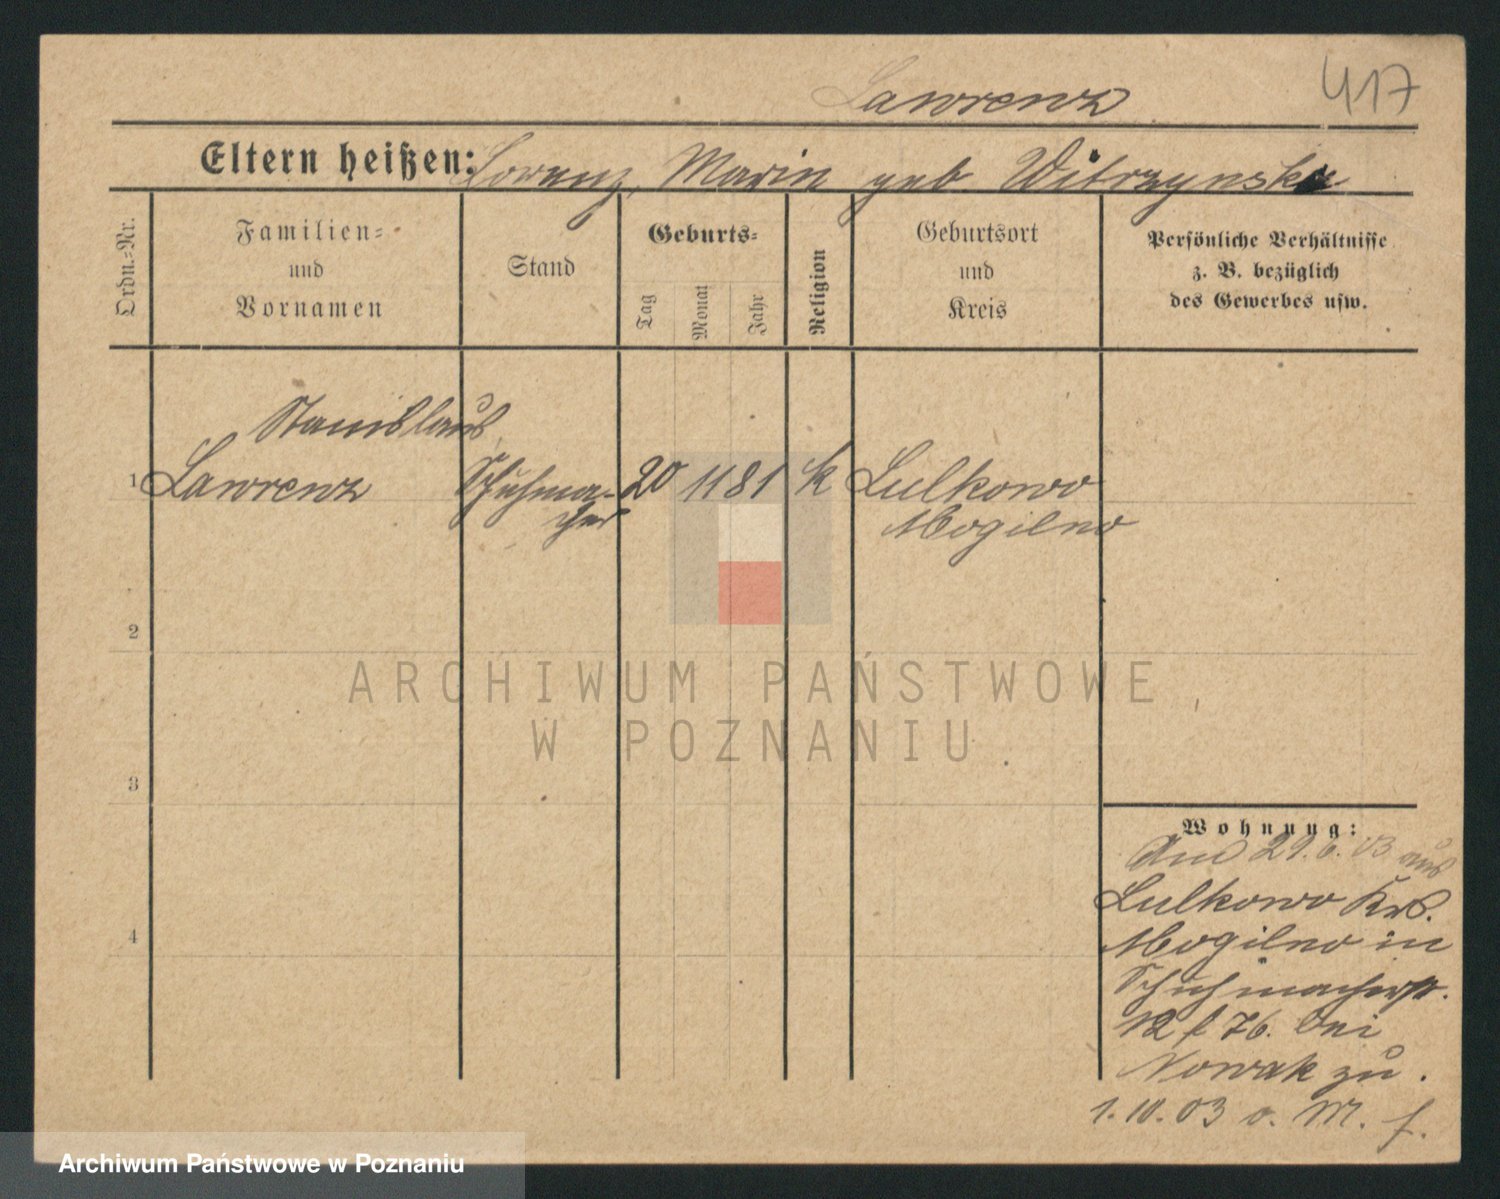 417
Lawrenz
Eltern heißen: Lorenz, Marin geb Witrzynska
Ordn.=Nr.
Familien=
und
Vornamen
Stand
Geburts=
Tag
Monat
Jahr
Religion
Geburtsort
und
Kreis
Persönliche Verhältnisse
z. B. bezüglich
des Gewerbes usw.
Stanislaus
1 Lawrenz Schuhma- 20 11 81 k Lulkowo
cher Mogilno
2
3
4
Wohnung:
Am 29.6.03 aus
Lulkowo Krs.
Mogilno in
Schuhmacherstr.
12 f 76. bei
Nowak zu.
1.10.03 o. M. f.
ARCHIWUM PAŃSTWOWE
W POZNANIU
Archiwum Państwowe w Poznaniu